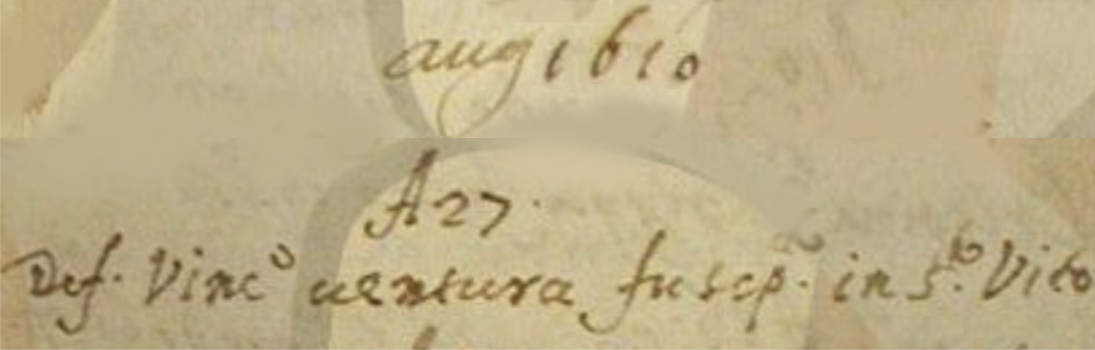 aug 1610
A 27.
Def. Vincº uentura fu sep. in S.to Vito